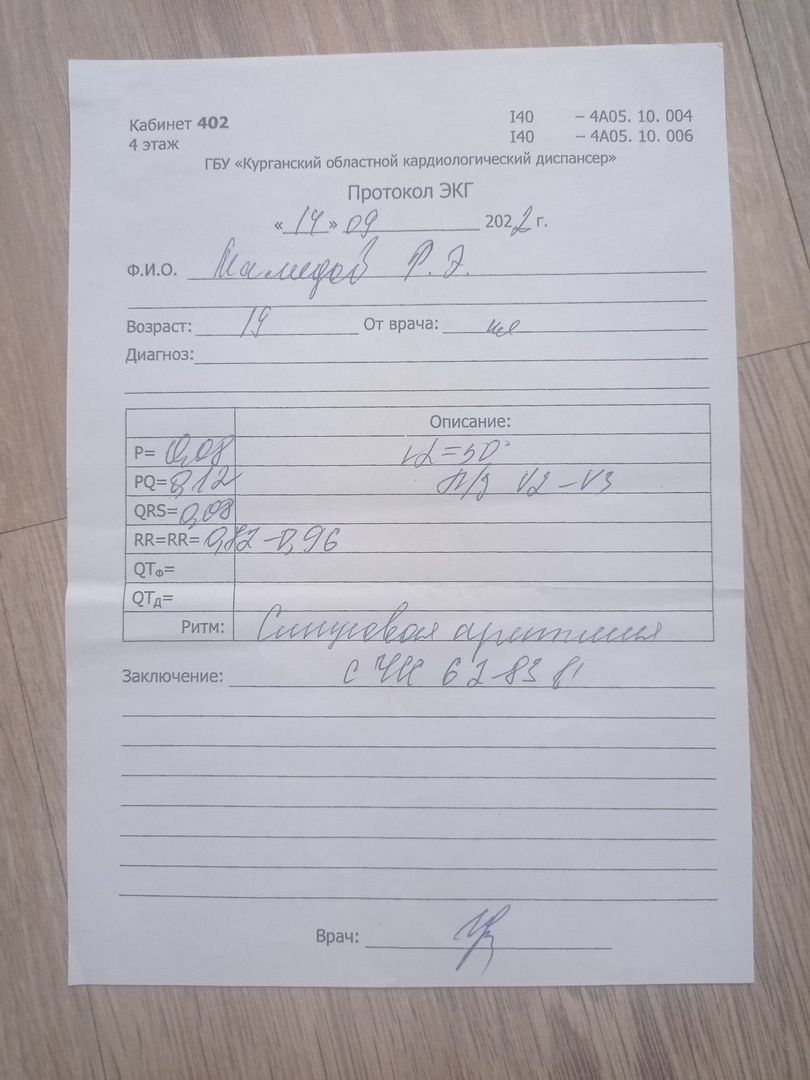 Кабинет 402
I40 – 4A05. 10. 004
4 этаж
I40 – 4A05. 10. 006
ГБУ «Курганский областной кардиологический диспансер»
Протокол ЭКГ
«14» 09 2022 г.
Ф.И.О. Мамедов Р. Э.
Возраст: 19 От врача:
Диагноз:
Описание:
P= 0,08 ∠α=50°
PQ= 0,12 П/З V2 – V3
QRS= 0,08
RR=RR= 0,72 – 0,96
QTф=
QTд=
Ритм: Синусовая аритмия
Заключение: с ЧСС 62-83 в'
Врач: